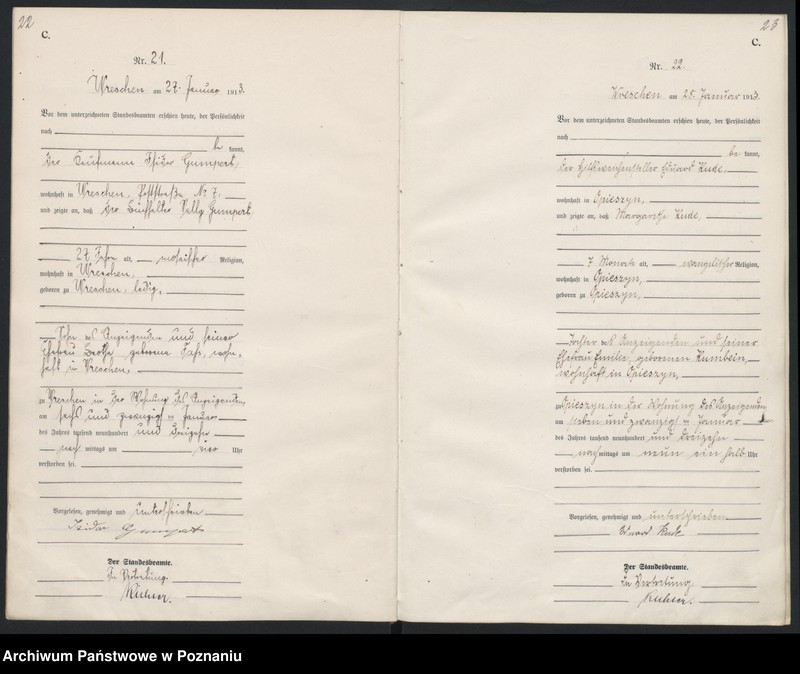 22
C.
Nr. 21.
Wreschen am 27. Januar 1913.
Vor dem unterzeichneten Standesbeamten erschien heute, der Persönlichkeit
nach
be kannt,
der Kaufmann Isidor Gumpert,
wohnhaft in Wreschen, Poststraße No 7,
und zeigte an, daß der Buchhalter Gumpert,
27 Jahre alt, mosaischer Religion,
wohnhaft in Wreschen,
geboren zu Wreschen, ledig,
Sohn des Anzeigenden und seiner
Ehefrau geborene wohn-
haft in Wreschen,
zu Wreschen in der Wohnung des Anzeigenden,
am sechs und zwanzigsten Januar
des Jahres tausend neunhundert und dreizehn
nach mittags um vier Uhr
verstorben sei.
Vorgelesen, genehmigt und unterschrieben
Isidor Gumpert
Der Standesbeamte.
In Vertretung.
23
C.
Nr. 22.
Wreschen am 28. Januar 1913.
Vor dem unterzeichneten Standesbeamten erschien heute, der Persönlichkeit
nach
be kannt,
der Hilfsweichensteller Eduard Kude,
wohnhaft in Opieszyn,
und zeigte an, daß Margarethe Kude,
7 Monate alt, evangelischer Religion,
wohnhaft in Opieszyn,
geboren zu Opieszyn,
Tochter des Anzeigenden und seiner
Ehefrau Emilie, geborenen Kumbein,
wohnhaft in Opieszyn,
zu Opieszyn in der Wohnung des Anzeigenden
am sieben und zwanzigsten Januar
des Jahres tausend neunhundert und dreizehn
nach mittags um neun ein halb Uhr
verstorben sei.
Vorgelesen, genehmigt und unterschrieben
Eduard Kude
Der Standesbeamte.
In Vertretung.
Archiwum Państwowe w Poznaniu